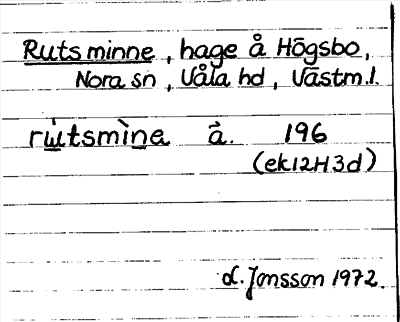 Ruts minne, hage å Högsbo,
Nora sn, Våla hd, Västm.l.
rù̱tsmìṉe a᷄. 196
(ek12H3d)
L. Jonsson 1972.